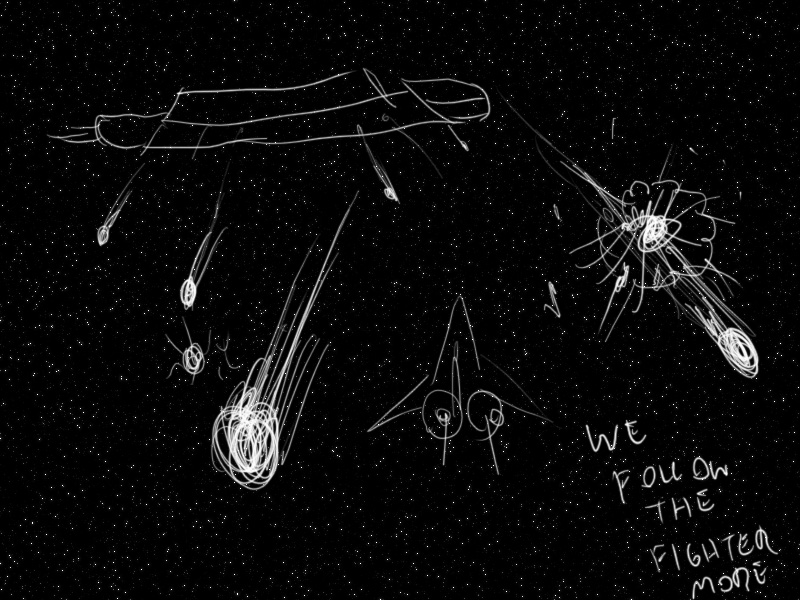 WE
FOLLOW
THE
FIGHTER
MORE